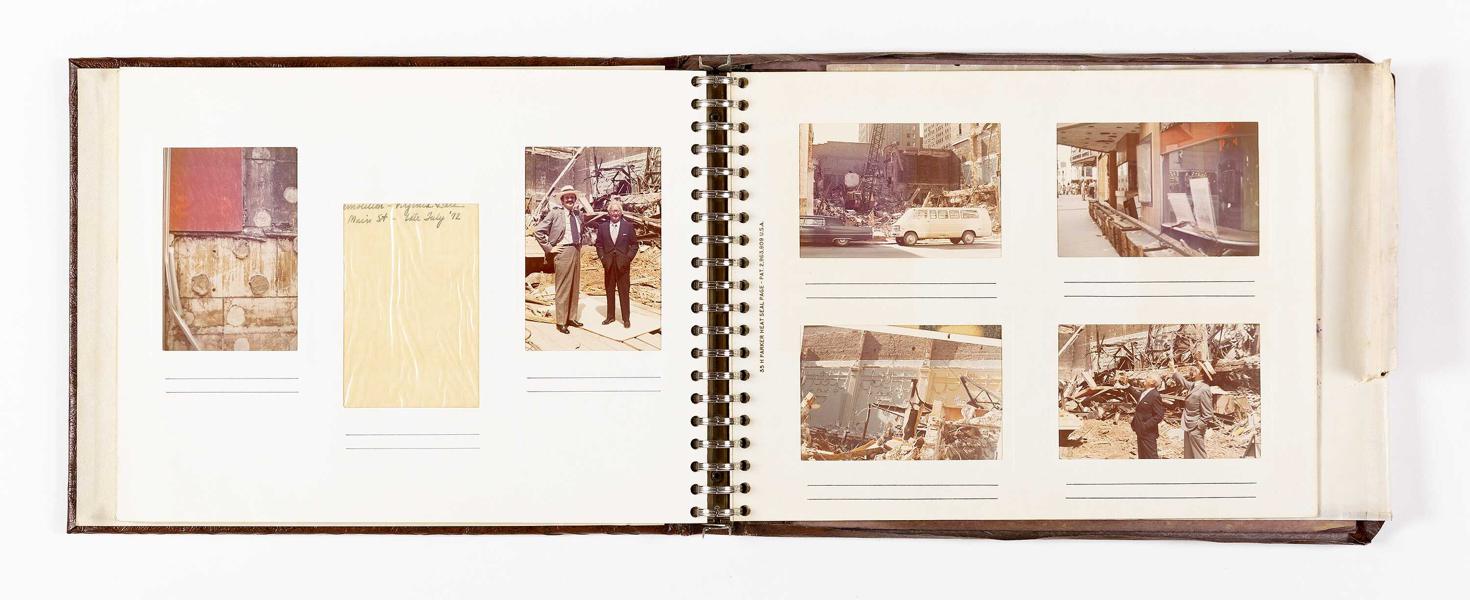 Demolition - Virginia &
Main St - late July '72
35 H PARKER HEAT SEAL PAGE - PAT. 2,963,809 U.S.A.